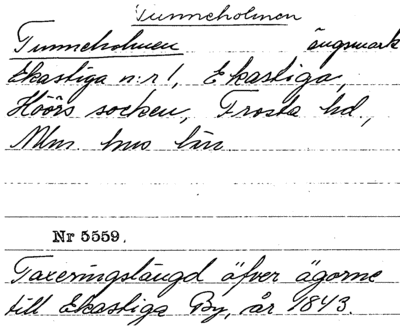 Tunneholmen
Tunneholmen ängsmark
Ekastiga n:r 1, Ekastiga,
Höörs socken, Frosta hd,
Mlm. hus län
Nr 5559.
Taxeringslängd öfver ägorne
till Ekastiga By, år 1843.